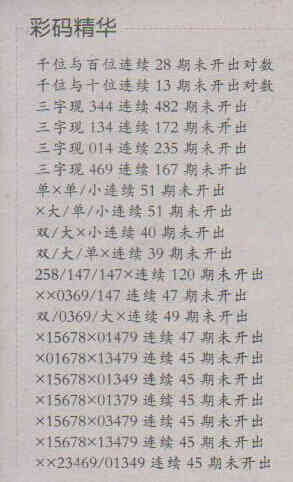 彩码精华
千位与百位连续 28 期未开出对数
千位与十位连续 13 期未开出对数
三字现 344 连续 482 期未开出
三字现 134 连续 172 期未开出
三字现 014 连续 235 期未开出
三字现 469 连续 167 期未开出
单×单/小连续 51 期未开出
×大/单/小连续 51 期未开出
双/大×小连续 40 期未开出
双/大/单×连续 39 期未开出
258/147/147×连续 120 期未开出
××0369/147 连续 47 期未开出
双/0369/大×连续 49 期未开出
×15678×01479 连续 47 期未开出
×01678×13479 连续 45 期未开出
×15678×01349 连续 45 期未开出
×15678×01379 连续 45 期未开出
×15678×03479 连续 45 期未开出
×15678×13479 连续 45 期未开出
××23469/01349 连续 45 期未开出